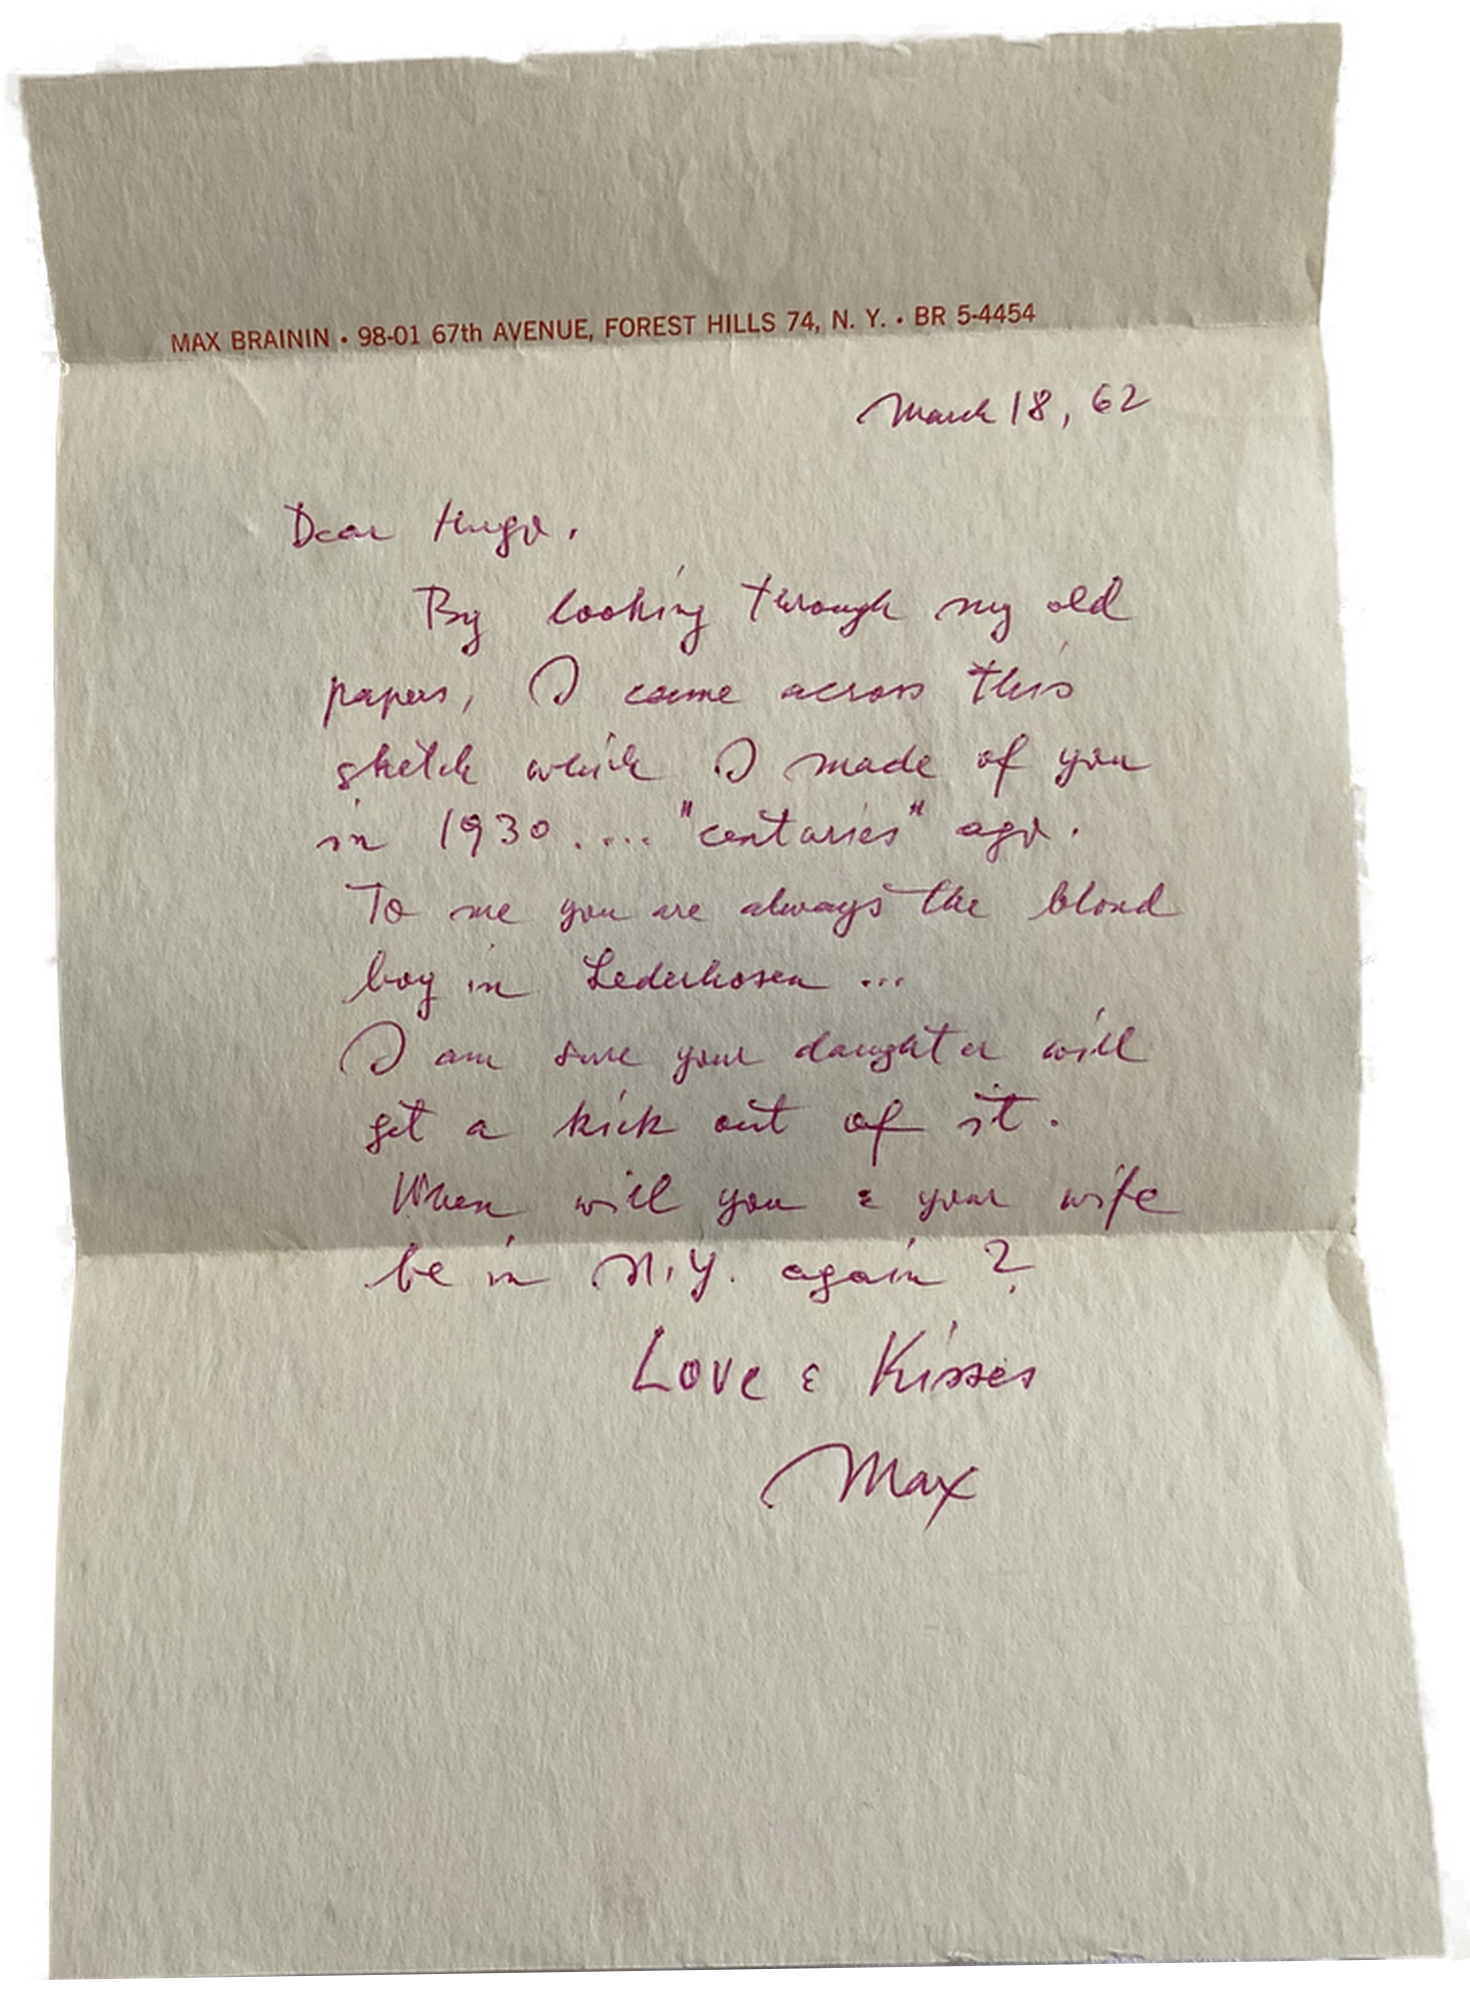 MAX BRAININ • 98-01 67th AVENUE, FOREST HILLS 74, N. Y. • BR 5-4454
March 18, 62
Dear Hugo,
By looking through my old
papers, I came across this
sketch which I made of you
in 1930.... "centuries" ago.
To me you are always the blond
boy in Lederhosen ...
I am sure your daughter will
get a kick out of it.
When will you & your wife
be in N.Y. again ?
Love & Kisses
Max